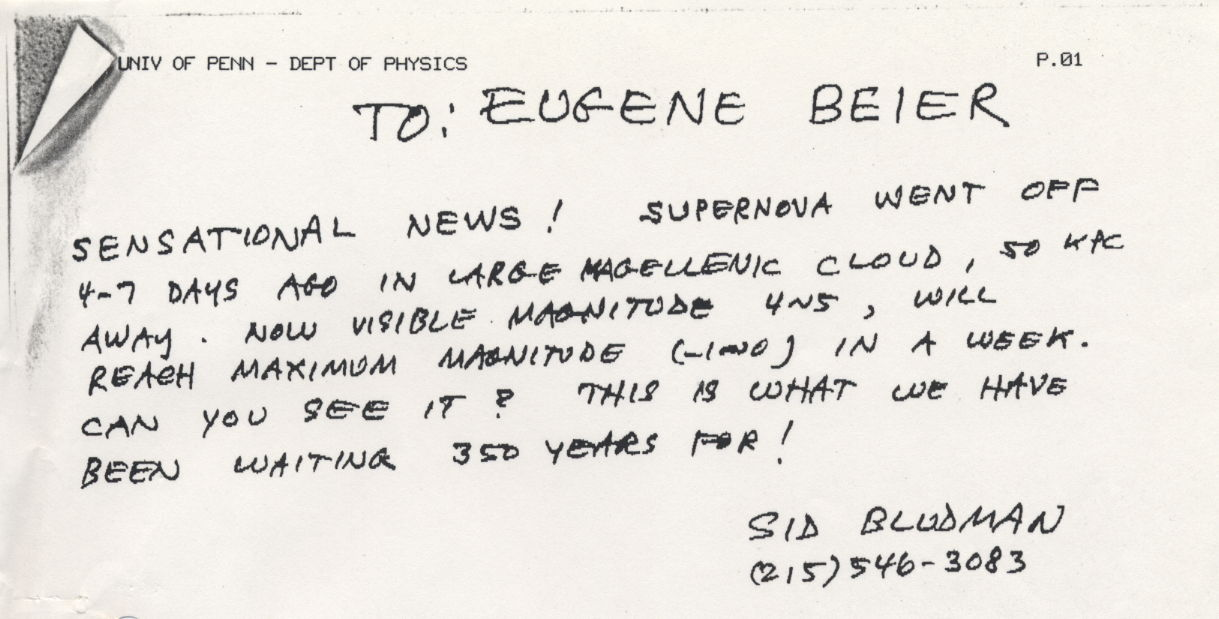 UNIV OF PENN - DEPT OF PHYSICS P.01
TO: EUGENE BEIER
SENSATIONAL NEWS! SUPERNOVA WENT OFF
4-7 DAYS AGO IN LARGE MAGELLENIC CLOUD, 50 KPC
AWAY. NOW VISIBLE MAGNITUDE 4~5, WILL
REACH MAXIMUM MAGNITUDE (-1~0) IN A WEEK.
CAN YOU SEE IT? THIS IS WHAT WE HAVE
BEEN WAITING 350 YEARS FOR!
SID BLUDMAN
(215) 546-3083